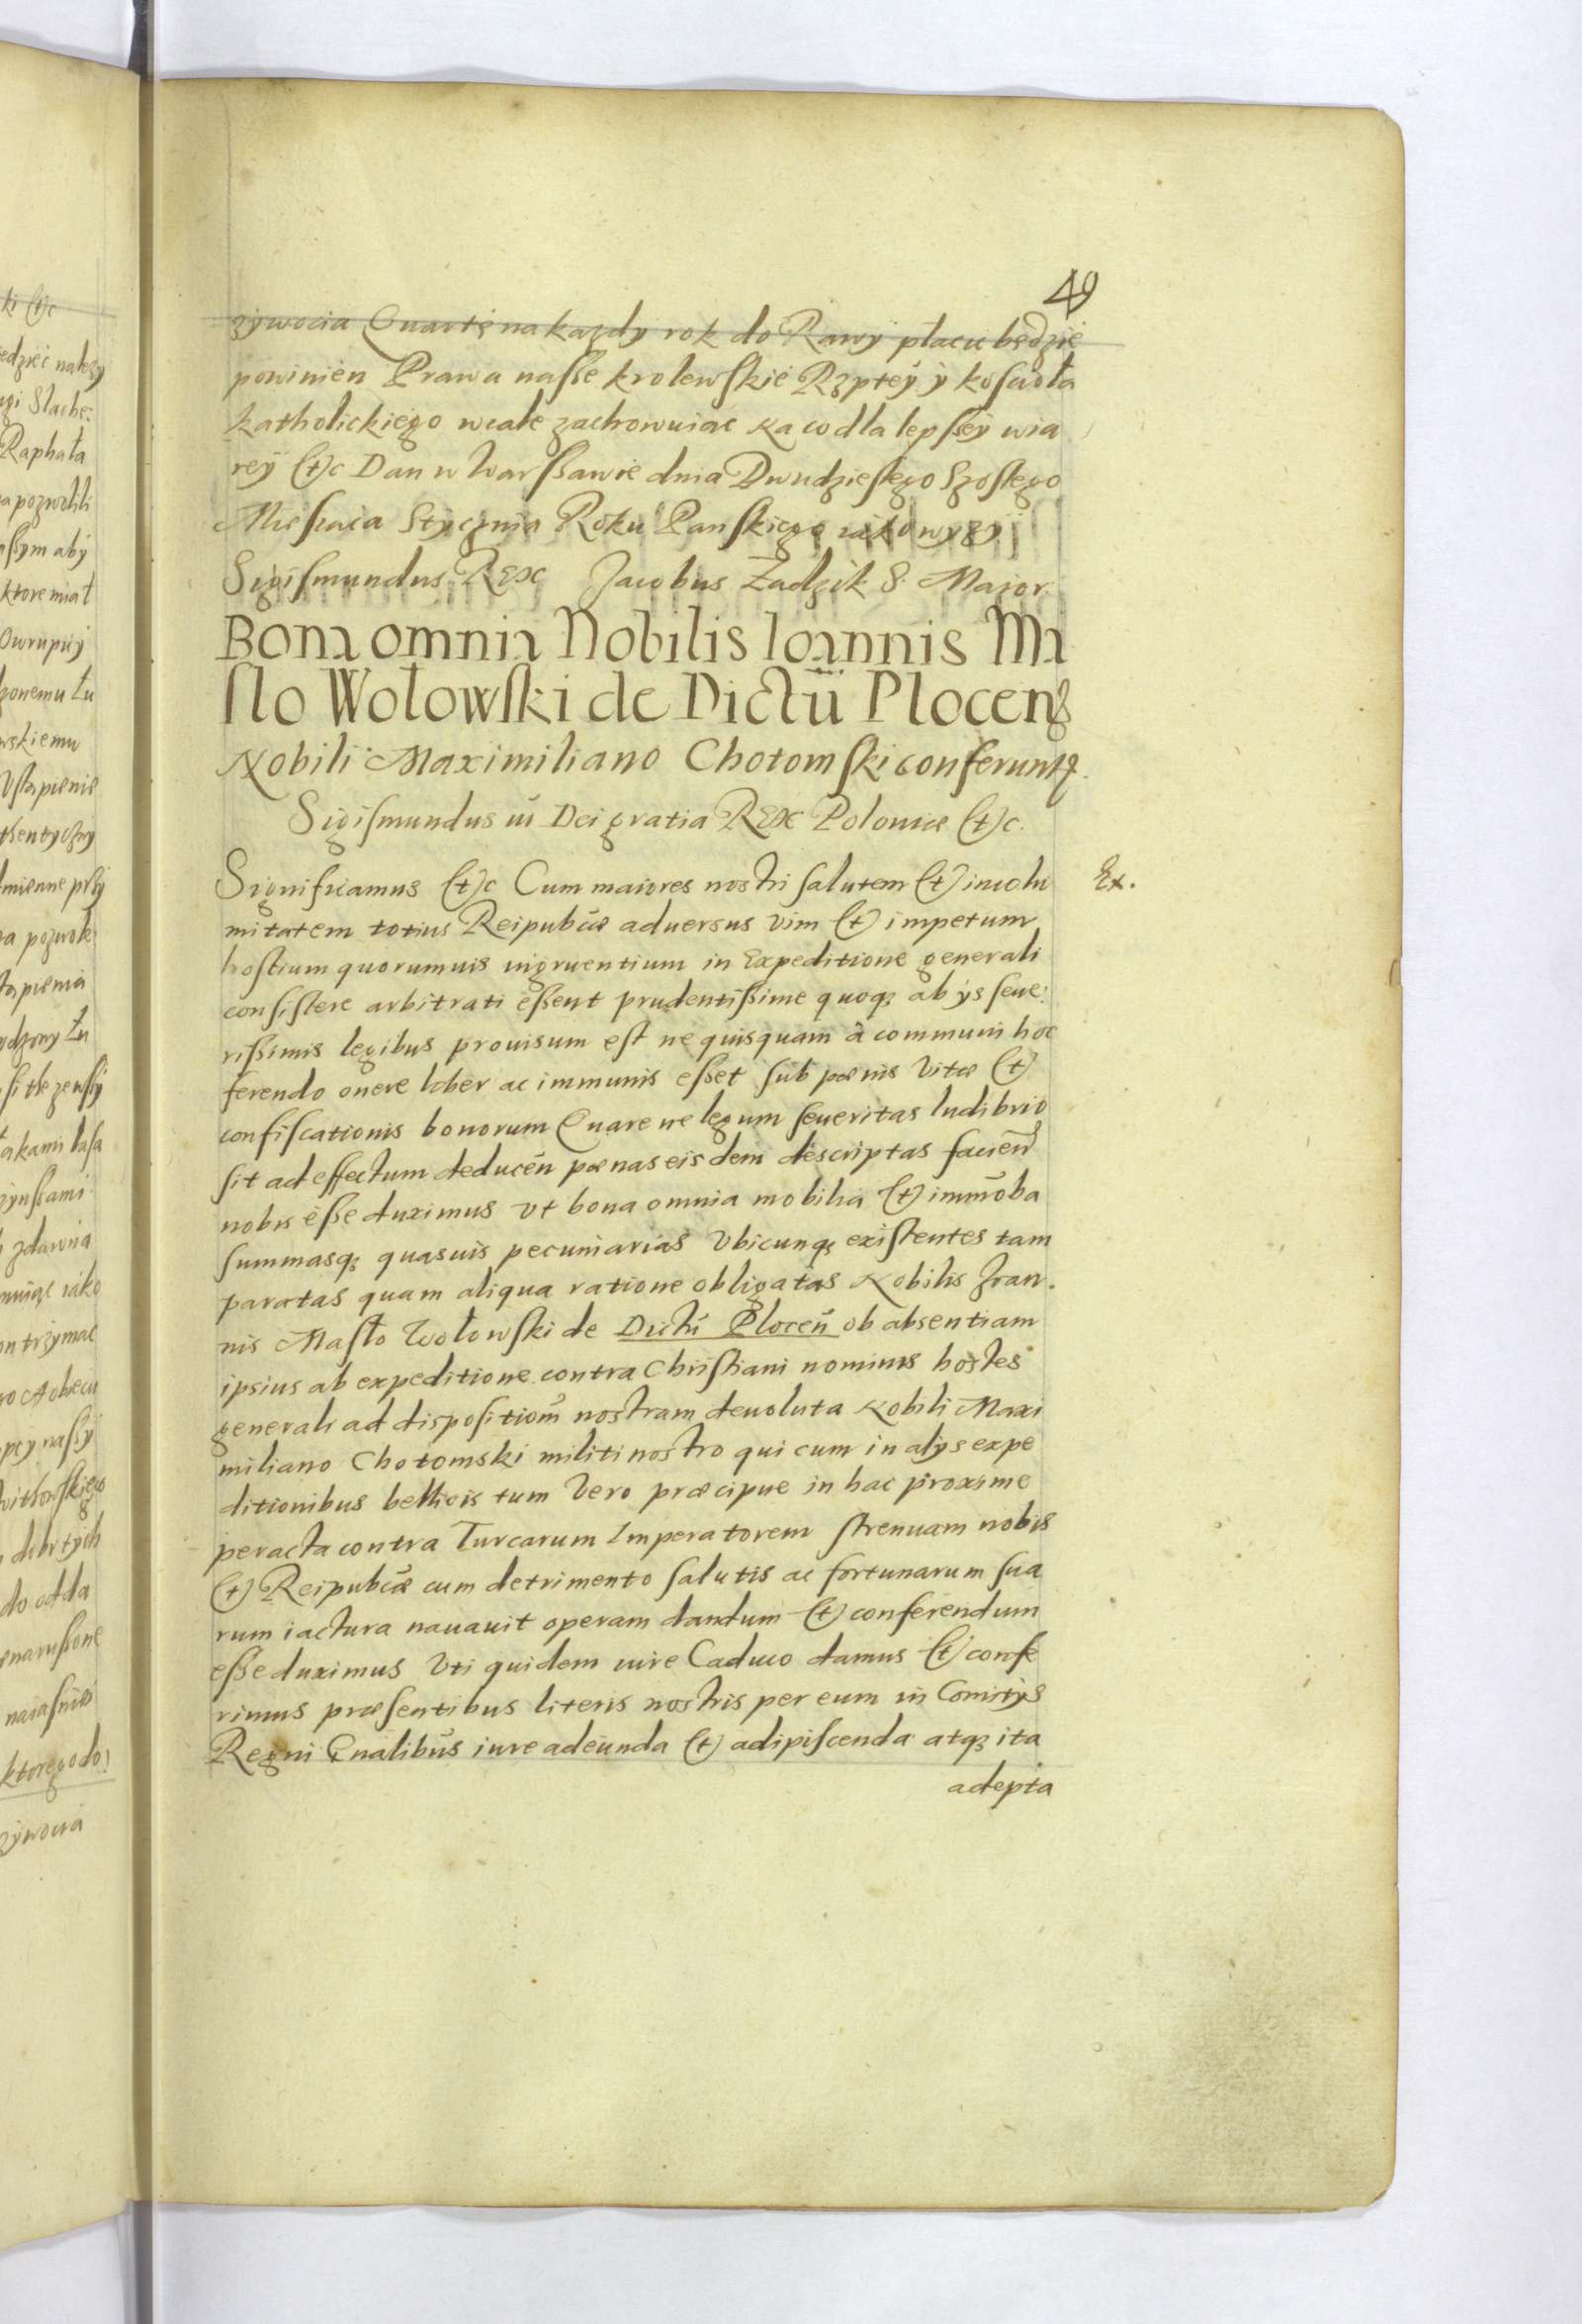 49
zywocia Quartę na kazdy rok do Rawy płacic będzie
powinien Prawa nasse krolewskie Rzptey y koscioła
katholickiego wcale zachowuiac Na co dla lepssey wia
rey (t)c Dan w Warssawie dnia Dwudziestego Szostego
Miesiaca Stycznia Roku Panskiego iako wyzy
Sigismundus Rex Jacobus Zadzik S. Maior
Bona omnia Nobilis Ioannis Ma
slo Wołowski de Dictū Plocenz
Nobili Maximiliano Chotomski conferuntz.
Sigismundus iii Dei gratia Rex Poloniæ (t)c.
Significamus (t)c Cum maiores nostri salutem (t) incolu
Ex.
mitatem totius Reipubcæ aduersus vim (t) impetum
hostium quorumuis ingruentium in Expeditione generali
consistere arbitrati essent prudentissime quoqz ab ys seue:
rissimis legibus prouisum est ne quisquam à communi hoc
ferendo onere liber ac immunis esset sub pœnis Vitæ (t)
confiscationis bonorum Quare ne legum seueritas ludibrio
sit ad effectum deducēn pœnas eisdem descriptas faciend
nobis esse duximus vt bona omnia mobilia (t) immōba
summasqz quasuis pecuniarias Vbicunqz existentes tam
paratas quam aliqua ratione obligatas Nobilis Joan.
nis Masło Wołowski de Dictū Plocen̄ ob absentiam
ipsius ab expeditione contra Christiani nominis hostes
generali ad dispositiom̄ nostram deuoluta Nobili Maxi
miliano Chotomski militi nostro qui cum in alys expe
ditionibus bellicis tum Vero præcipue in hac proxime
peracta contra Turcarum Imperatorem strenuam nobis
(t) Reipubcæ cum detrimento salutis ac fortunarum sua
rum iactura nauauit operam dandum (t) conferendum
esse duximus Vti quidem iure Caduco damus (t) confe
rimus præsentibus literis nostris per eum in Comitys
Regni Gnālibus iure adeunda (t) adipiscenda atqz ita
adepta